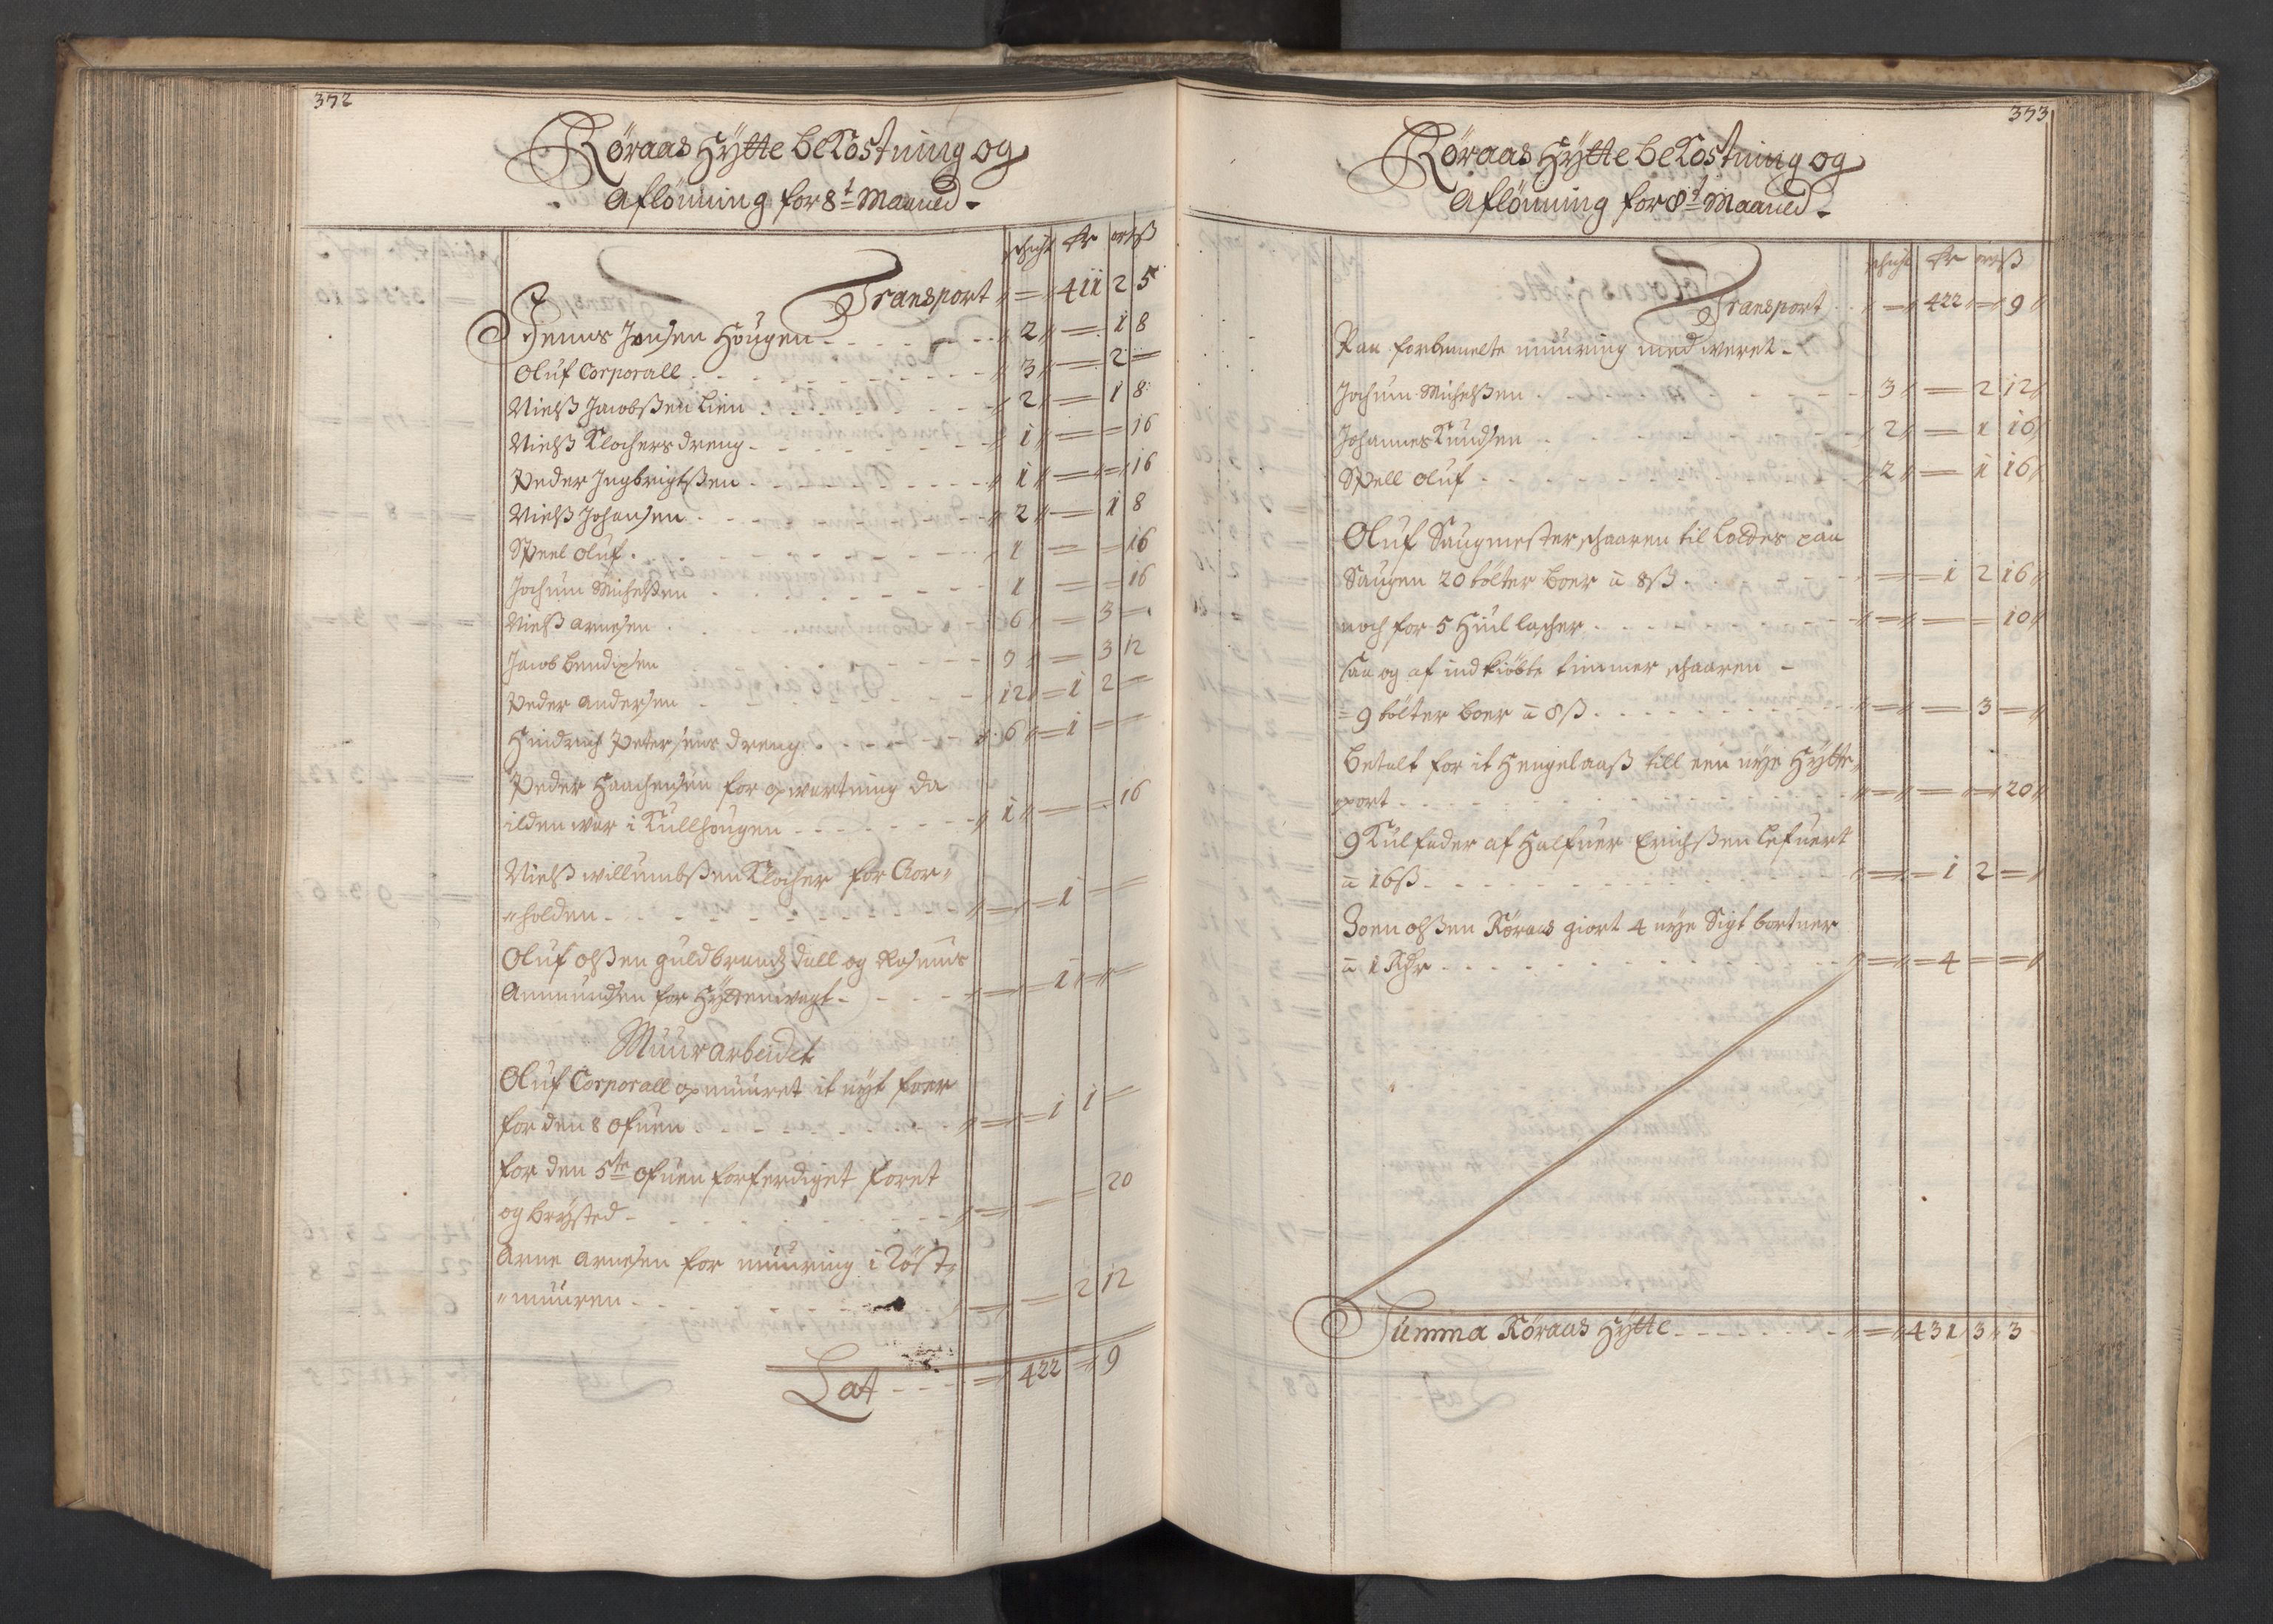 372
Röraas Hÿtte beKostning og
Aflönning for 8t Maaned
schicht Rdr ort ß
Transport = 411 2 5
Jenns Jonsen Hougen 2 = 1 8
Oluf Corporall 3 = 2 =
Nielß Jacobßen Lien 2 = 1 8
Nielß Klochers dreng 1 = = 16
Peder Ingbrigtßen 1 = = 16
Nielß Johansen 2 = 1 8
Speel Oluf 1 = = 16
Jochum Michelßen 1 = = 16
Nielß Arnesen 6 = 3 =
Jacob Bendixsen 7 = 3 12
Peder Andersen 12 = 1 2 =
Hindrich Petersens dreng 6 = 1 = =
Peder Haachensen for opwartning da
ilden war i Kullhougen 1 = = 16
Nielß Willumbßen Klocher for Aor-
holden = 1 = =
Oluf Olßen Guldbrandsdall og Rasmus
Ammundsen for Hÿttenwagt = 1 = =
Muurarbeidet
Oluf Corporall opmuuret it nyt foer
for den 8 ofuen = 1 1 =
for den 5te ofuen forferdiget foret
og Brÿsted = = = 20
Arne Arnesen for muuring i Röst-
muuren = = 2 12
Lat = 422 = 9
373
Röraas Hÿtte beKostning og
Aflönning for 8t Maaned
schicht Rdr ort ß
Transport = 422 = 9
Paa forbemelte muuring med weret
Jochum Michelßen 3 = 2 12
Johannes Kundsen 2 = 1 16
Spell Oluf 2 = 1 16
Oluf Saugmester schaaren til Loldes paa
Saugen 20 tolter Boer a 8ß = 1 2 16
noch for 5 Huul lacher = = = 10
saa og af indkiöbte timmer schaaren
9 tolter boer a 8ß = = 3 =
Betalt for it Hengelaaß till een nye Hÿtte
port = = = 20
9 Kulfader af Halfuer Erichßen lefuert
a 16ß = 1 2 =
Joen Olßen Röraas giort 4 nye Sigt bortner
a 1 Rdr = 4 = =
Summa Röraas Hÿtte = 431 3 3